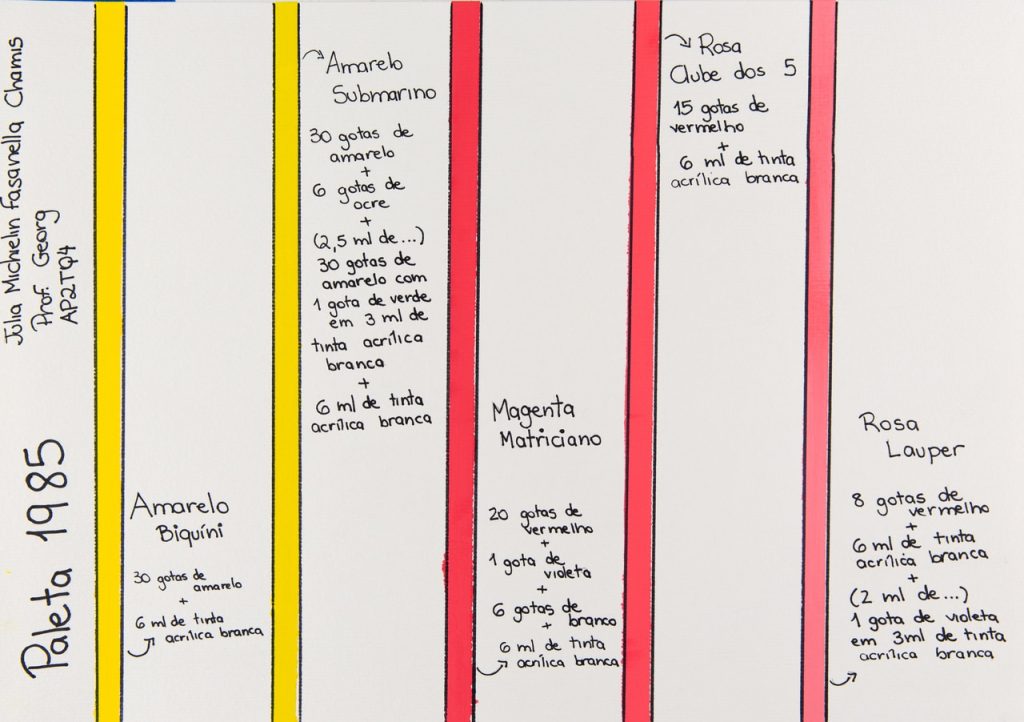 Júlia Michielin Fasanella Chamis
Prof. Georg
AP2TQ4
Paleta 1985
Amarelo
Biquíni
30 gotas de
amarelo
+
6 ml de tinta
acrílica branca
Amarelo
Submarino
30 gotas de
amarelo
+
6 gotas de
ocre
+
(2,5 ml de...)
30 gotas de
amarelo com
1 gota de verde
em 3 ml de
tinta acrílica
branca
+
6 ml de tinta
acrílica branca
Magenta
Matriciano
20 gotas de
vermelho
+
1 gota de
violeta
+
6 gotas de
branco
+
6 ml de tinta
acrílica branca
Rosa
Clube dos 5
15 gotas de
vermelho
+
6 ml de tinta
acrílica branca
Rosa
Lauper
8 gotas de
vermelho
+
6 ml de tinta
acrílica branca
+
(2 ml de...)
1 gota de violeta
em 3ml de tinta
acrílica branca